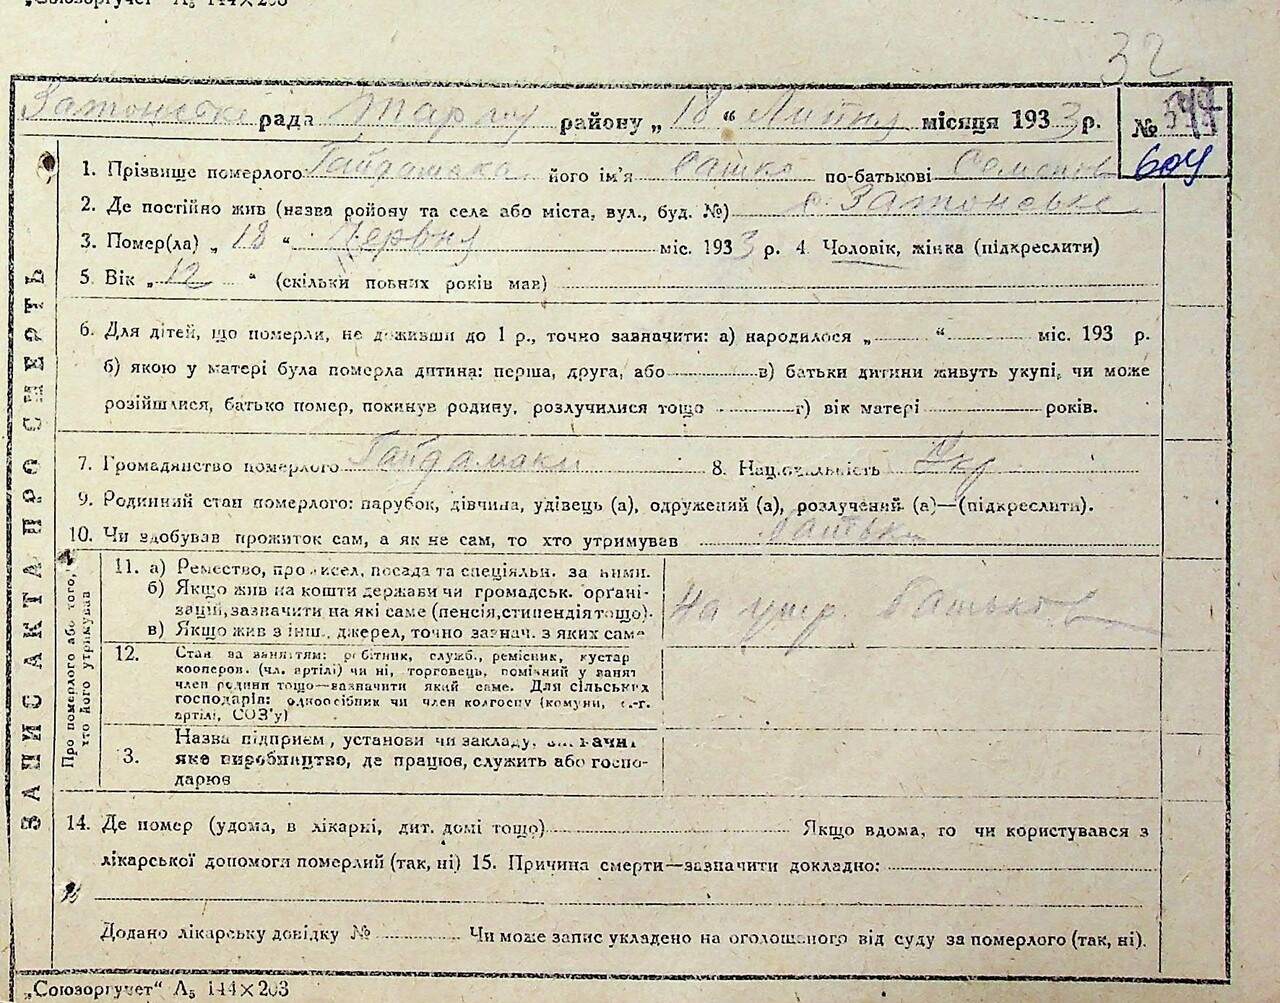 „Союзоргучет“ А5 144×203
32
Затонське рада району „ 18 “ Липня місяця 1933 р. №
604
1. Прізвище померлого Гайдамака його ім'я Сашко по-батькові Семенов
2. Де постійно жив (назва району та села або міста, вул., буд. №) с. Затонське
3. Помер(ла) „ 18 “ Червня міс. 1933 р. 4. Чоловік, жінка (підкреслити)
5. Вік „ 12 “ (скільки повних років мав)
6. Для дітей, що померли, не доживши до 1 р., точно зазначити: а) народилося „ “ міс. 193 р.
б) якою у матері була померла дитина: перша, друга, або в) батьки дитини живуть укупі, чи може
розійшлися, батько помер, покинув родину, розлучилися тощо г) вік матері років.
7. Громадянство померлого Гайдамаки 8. Національність Укр
9. Родинний стан померлого: парубок, дівчина, удівець (а), одружений (а), розлучений (а)—(підкреслити).
10. Чи здобував прожиток сам, а як не сам, то хто утримував батьки
ЗАПИС АКТА ПРО СМЕРТЬ
Про померлого або того, хто його утримував
11. а) Ремество, промисел, посада та спеціяльн. за ними.
б) Якщо жив на кошти держави чи громадськ. орґані-
зацій, зазначити на які саме (пенсія, стипендія тощо).
в) Якщо жив з інш. джерел, точно зазнач. з яких саме
На утр. батьков
12. Стан за заняттям: робітник, служб., ремісник, кустар
кооперов. (чл. артілі) чи ні, торговець, помічний у занят
член родини тощо—зазначити який саме. Для сільських
господарів: одноосібник чи член колгоспу (комуни, с.-г.
артілі, СОЗ'у)
3. Назва підприєм., установи чи закладу,
яке виробництво, де працює, служить або госпо-
дарює
14. Де помер (удома, в лікарні, дит. домі тощо) Якщо вдома, то чи користувався з
лікарської допомоги померлий (так, ні) 15. Причина смерти—зазначити докладно:
Додано лікарську довідку № Чи може запис укладено на оголошеного від суду за померлого (так, ні).
„Союзоргучет“ А5 144×203